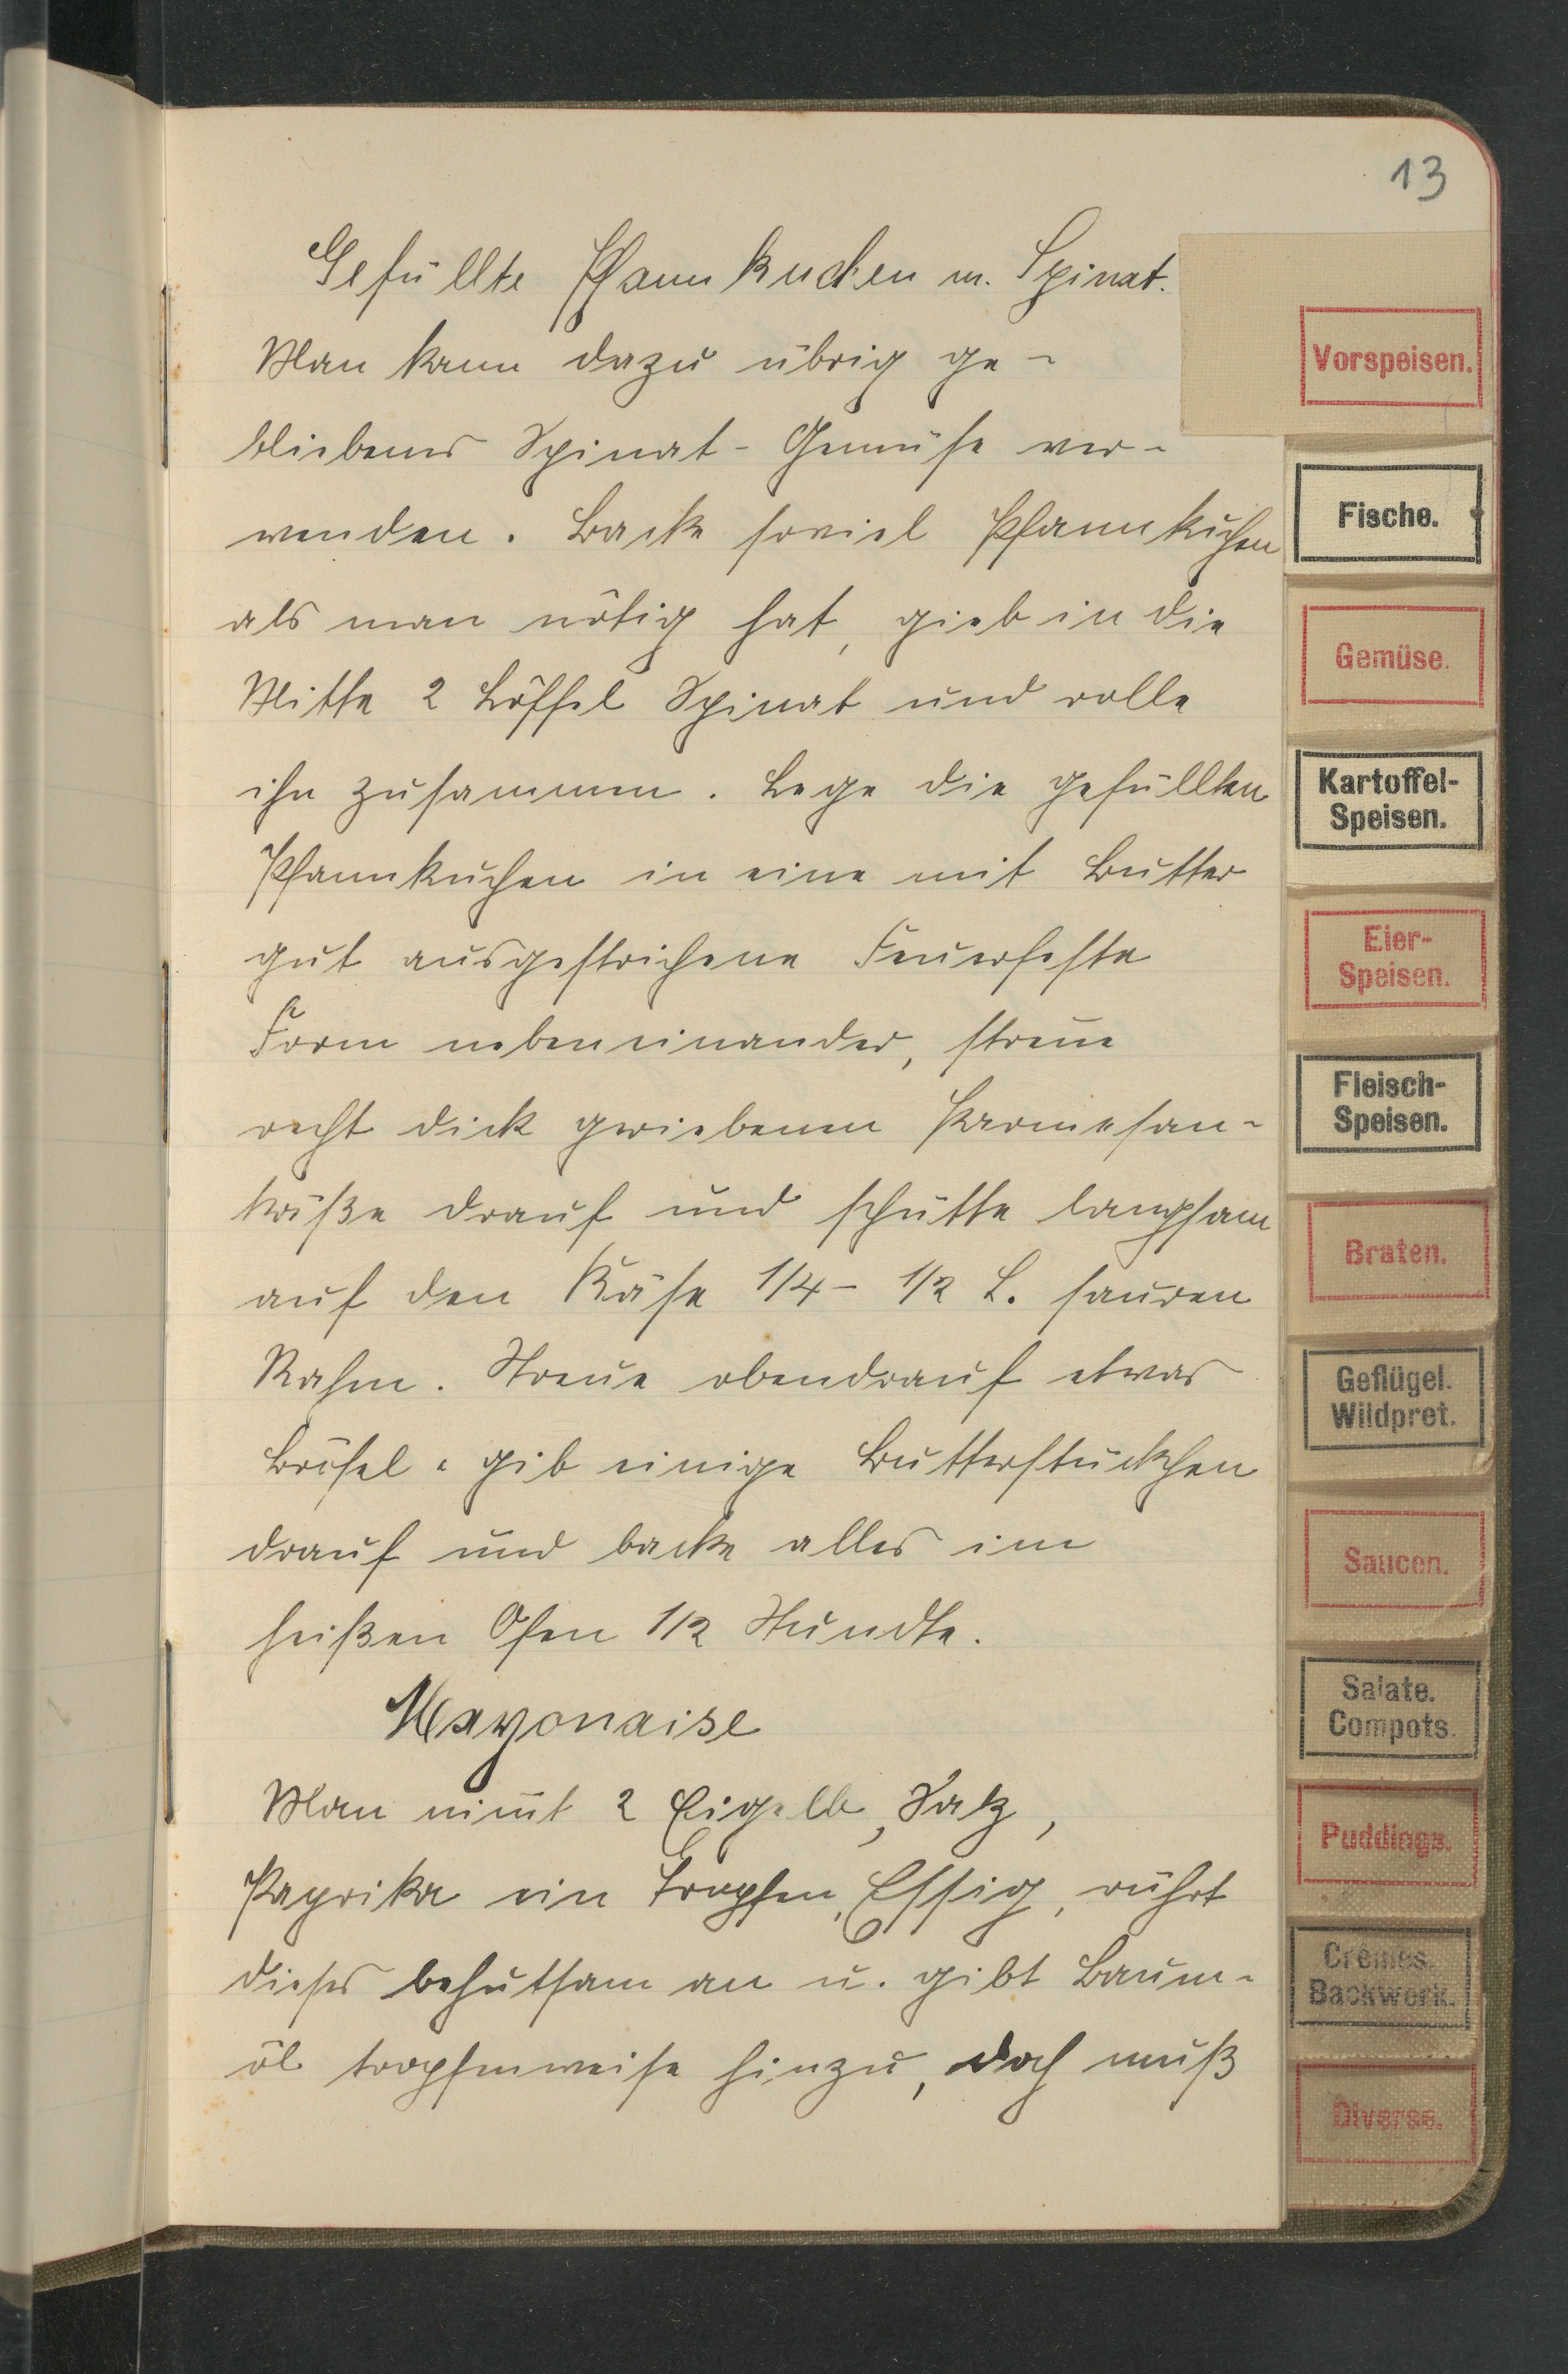 13
Gefüllte Pfannkuchen m. Spinat.
Man kann dazu übrig ge-
bliebenes Spinat-Gemüse ver-
wenden. Backe soviel Pfannkuchen
als man nötig hat, gieb in die
Mitte 2 Löffel Spinat und rolle
ihn zusammen. Lege die gefüllten
Pfannkuchen in eine mit Butter
gut ausgestrichene Feuerfeste
Form nebeneinander, streue
recht dick geriebenen Parmesan-
käße drauf und schütte langsam
auf den Käse 1/4 - 1/2 L. sauren
Rahm. Streue obendrauf etwas
Brösel, gib einige Butterstückchen
drauf und backe alles im
heißen Ofen 1/2 Stundte.
Mayonaise
Man nim̅t 2 Eigelb, Salz,
Paprika ein Tropfen, Essig, rührt
dieses behutsam an u. gibt Baum-
öl tropfenweise hinzu, doch muß
Vorspeisen.
Fische.
Gemüse.
Kartoffel-
Speisen.
Eier-
Speisen.
Fleisch-
Speisen.
Braten.
Geflügel.
Wildpret.
Saucen.
Salate.
Compots.
Puddings.
Crêmes.
Backwerk.
Diverse.